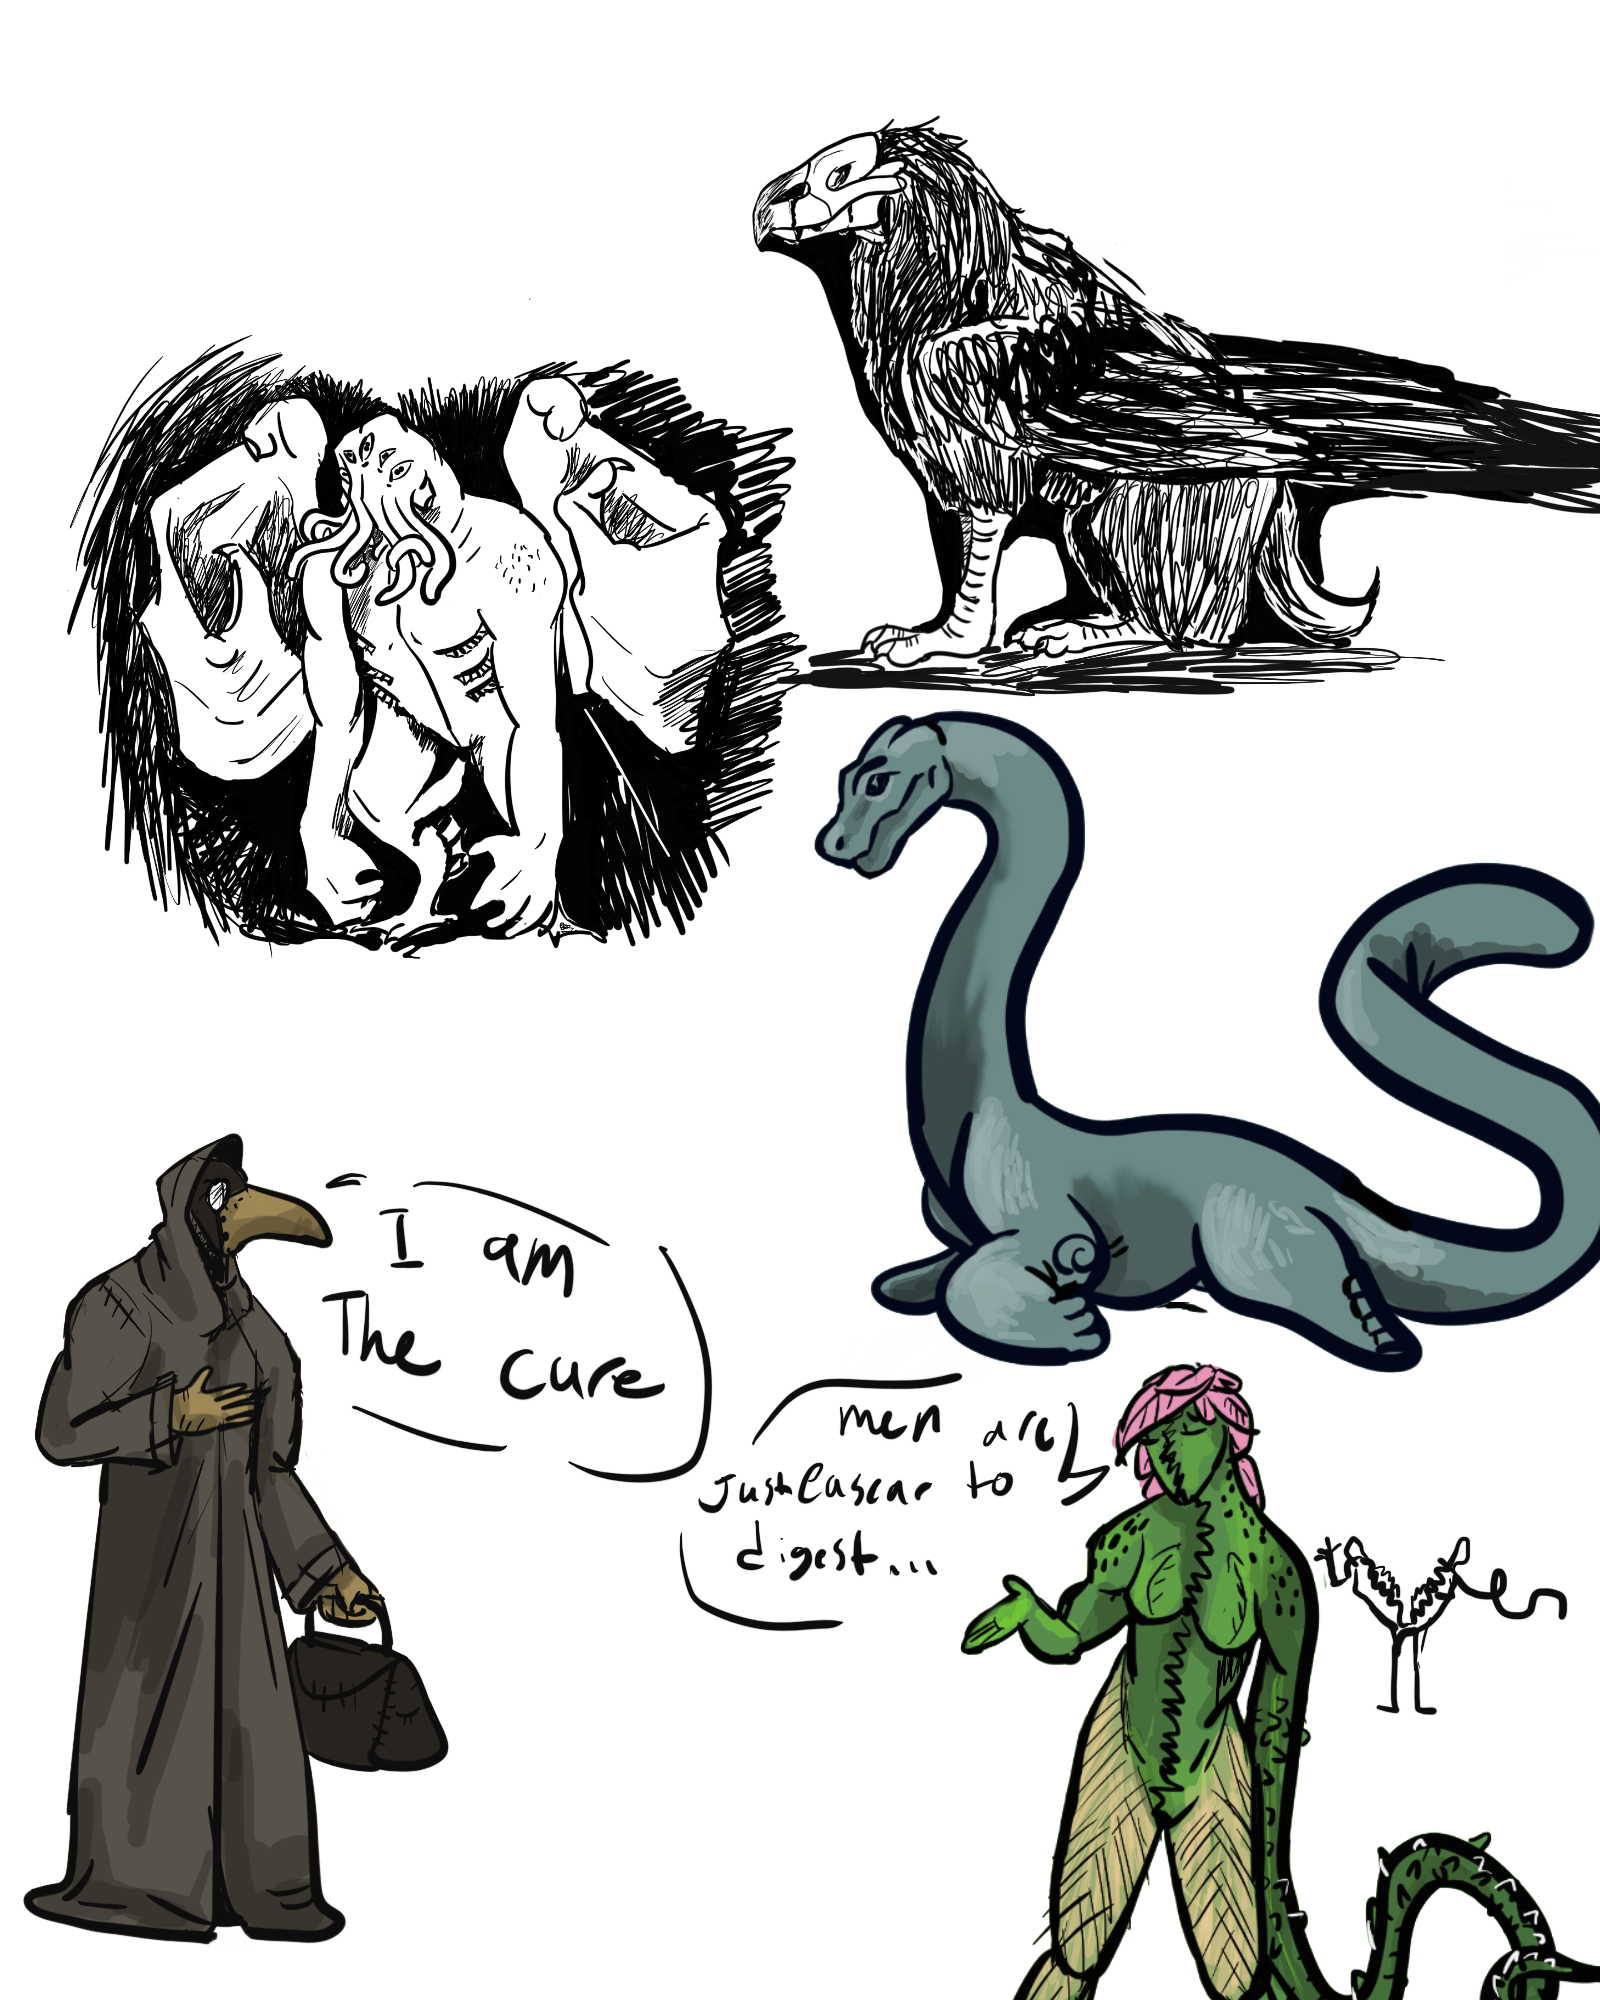 I am
The cure
men are
Just Eascar to
digest...